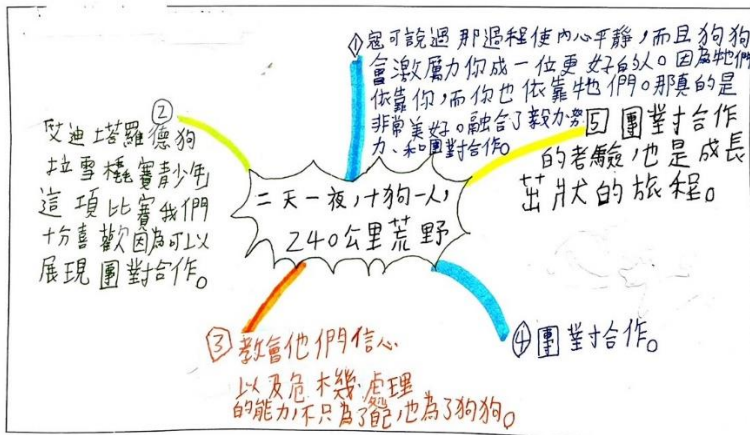 二天一夜,十狗一人,
240公里荒野
①寇可說過那過程使內心平靜,而且狗狗
會激厲力你成一位更好的人。因為牠們
依靠你,而你也依靠牠們。那真的是
非常美好。融合了毅力、努
力、和團對合作。
②
艾迪塔羅德狗
拉雪橇賽青少年
這項比賽我們
十分喜歡因為可以
展現團對合作。
③教會他們信心
以及危機處理
的能力,不只為了自己,也為了狗狗。
④團對合作。
5 團對合作
的考驗,也是成長
茁狀的旅程。